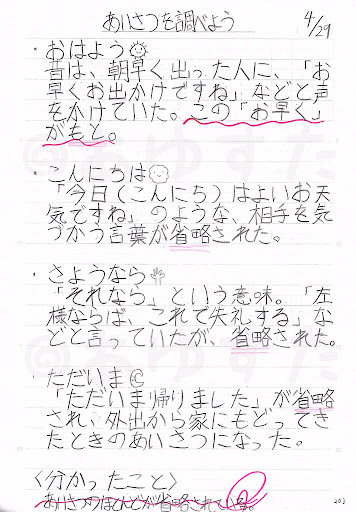 あいさつを調べよう 4/29
・おはよう
昔は、朝早く出った人に、「お
早くお出かけですね」などと声
をかけていた。この「お早く」
がもと。
・こんにちは
「今日(こんにち)はよいお天
気ですね」のような、相手を気
づかう言葉が省略された。
・さようなら
「それなら」という意味。「左
様ならば、これで失礼する」な
どと言っていたが、省略された。
・ただいま
「ただいま帰りました」が省略
され、外出から家にもどってき
たときのあいさつになった。
〈分かったこと〉
あいさつのほとんどが省略されている。
@あゆすた
@あゆすた